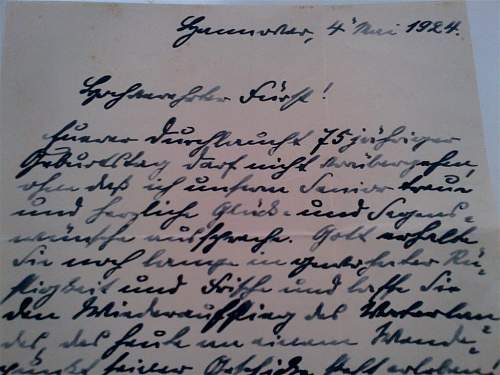 Hannover, 4 Mai 1924.
Hochverehrter Fürst!
Euerer Durchlaucht 75 jähriger
Geburtstag darf nicht vorübergehen,
ohn daß ich unserm Senior treue
und herzliche Glück- und Segens-
wünsche ausspreche. Gott erhalte
Sie noch lange in gewohnter Rü-
stigkeit und Frische und lasse Sie
den Wiederaufstieg des Vaterlan
des, das heute an einem Wende-
punkt seiner Geschicke steht erleben!